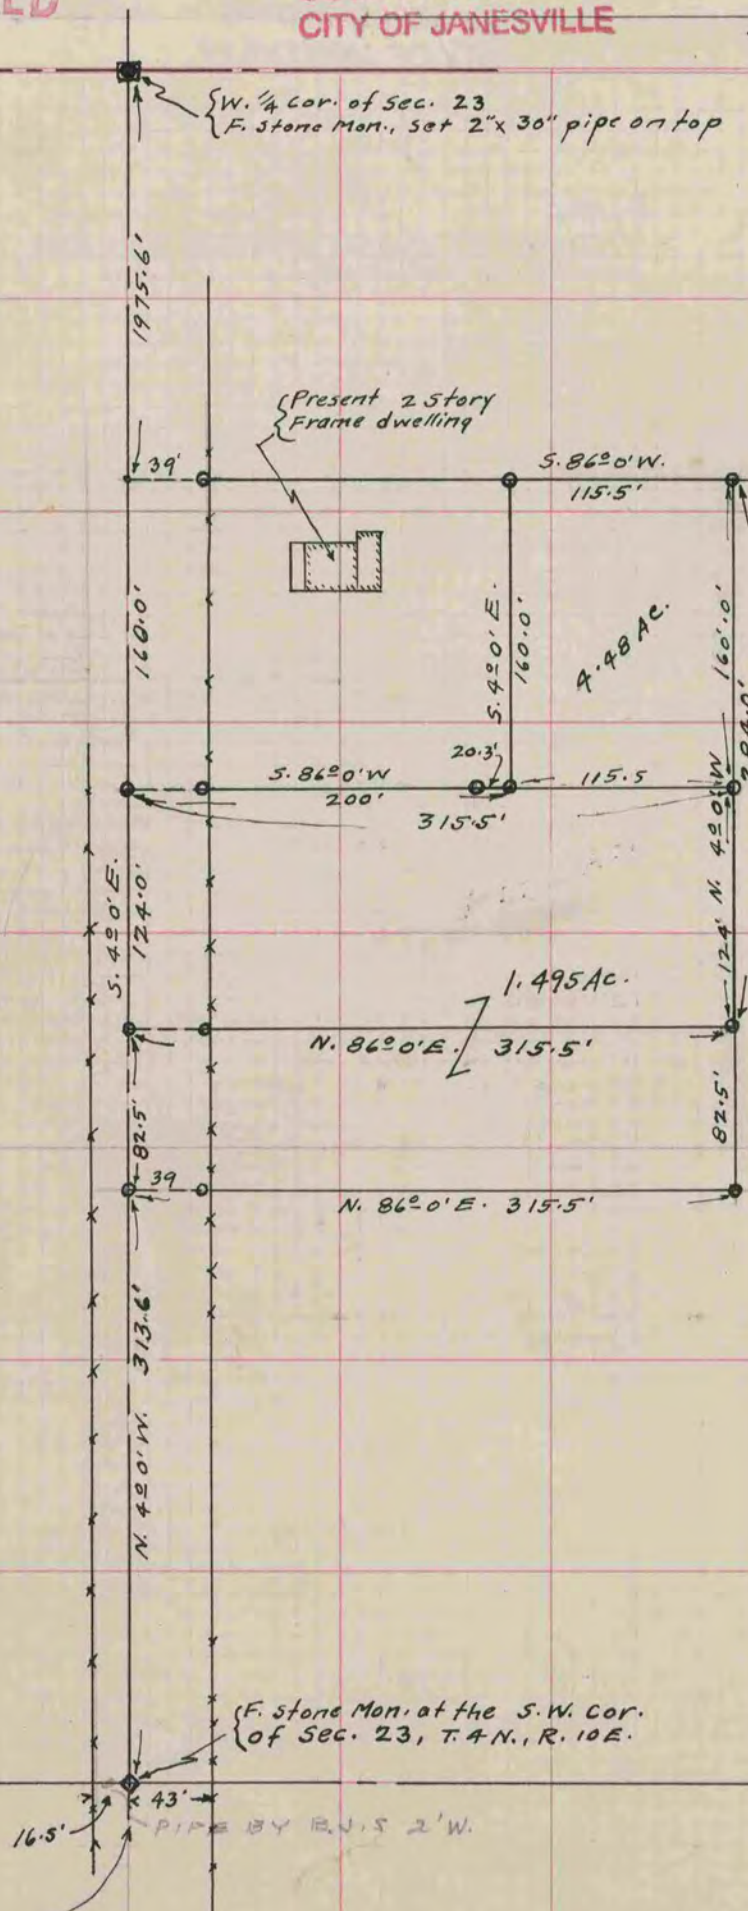 CITY OF JANESVILLE
W. ¼ cor. of Sec. 23
F. Stone Mon., set 2"x 30" pipe on top
1975.6'
Present 2 Story
Frame dwelling
39'
S. 86° 0' W.
115.5'
160.0'
S. 4° 0' E.
160.0'
4.48 Ac.
160'.0'
20.3'
S. 86° 0' W
200'
115.5
315.5'
S. 4° 0' E.
124.0'
124' N. 4° 0' W
1.495 Ac.
N. 86° 0' E. 315.5'
82.5'
82.5'
39
N. 86° 0' E. 315.5'
N. 4° 0' W. 313.6'
F. Stone Mon. at the S.W. Cor.
of Sec. 23, T. 4 N., R. 10 E.
43'
16.5'
PIPE BY 2' W.